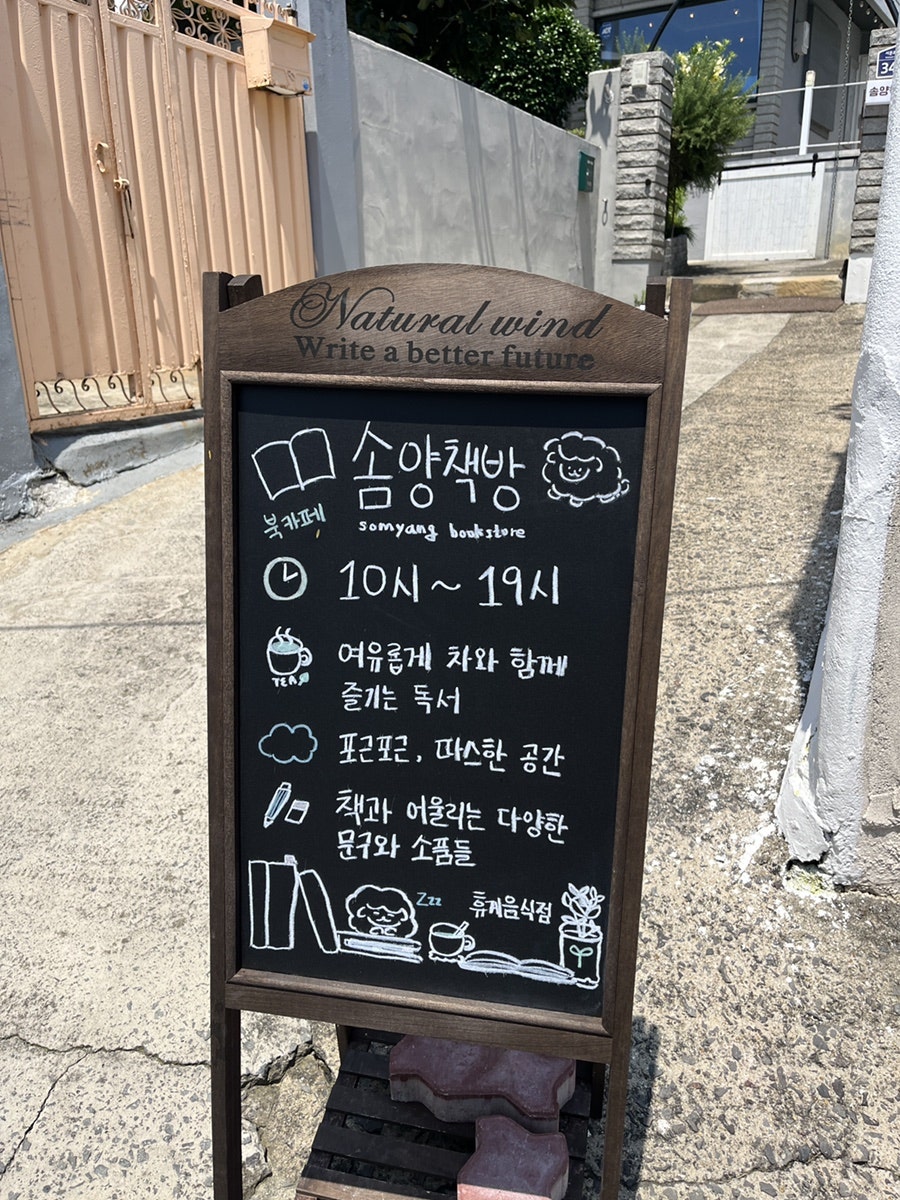 Natural wind
Write a better future
솜양책방
북카페
somyang bookstore
10시~19시
TEA
여유롭게 차와 함께
즐기는 독서
포근포근, 따스한 공간
책과 어울리는 다양한
문구와 소품들
Zzz
휴게음식점
34
송양